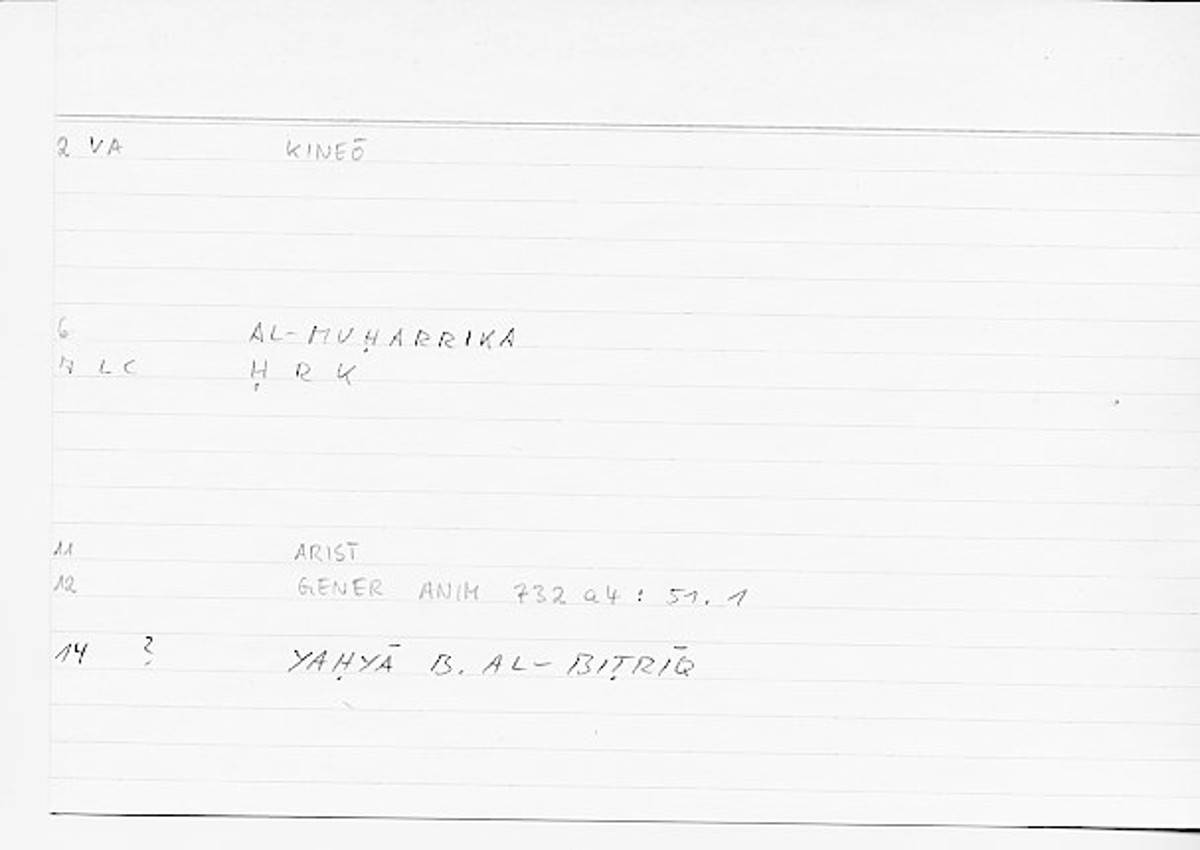 2 VA KINEŌ
6 AL-MUḤARRIKA
7 LC Ḥ R K
11 ARIST
12 GENER ANIM 732 a4 : 51. 1
14 ? YAḤYĀ B. AL-BIṬRĪQ